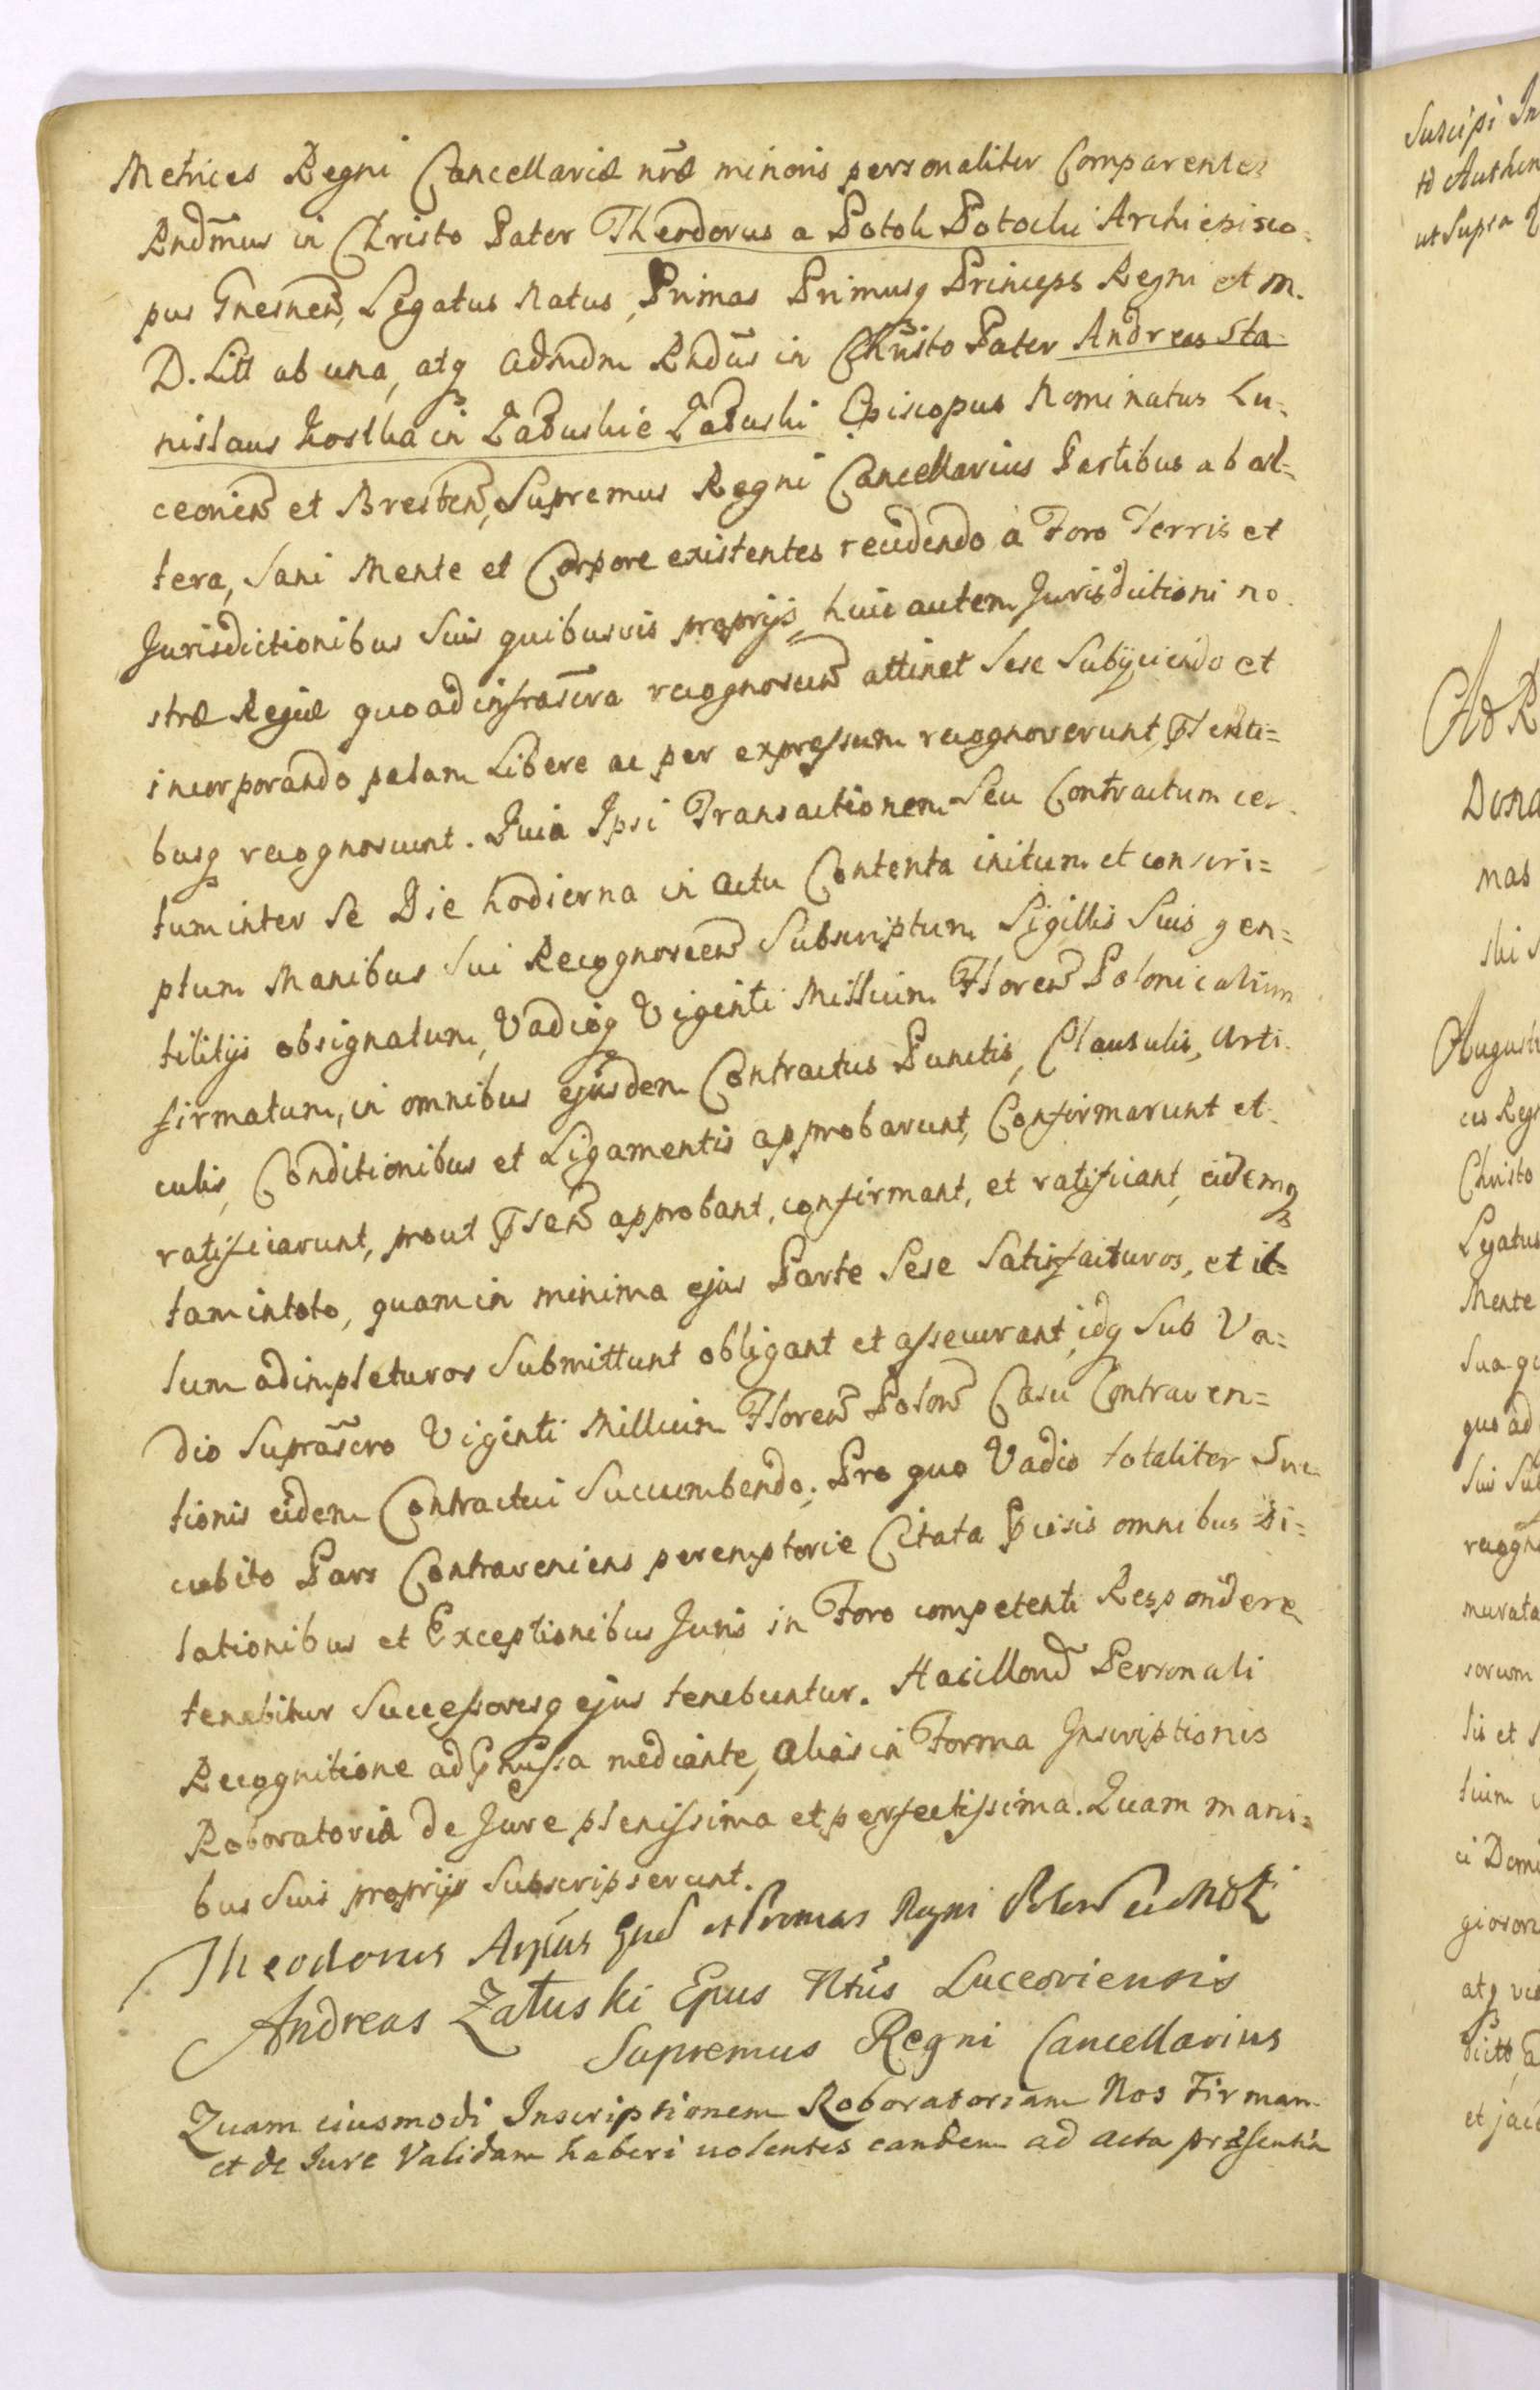 Metrices Regni Cancellariæ nr̃æ minoris personaliter Comparentes
Rndm̃us in Christo Pater Theodorus a Potok Potocki Archiepisco-
pus Gnesneñ, Legatus Natus, Primas Primusq Princeps Regni et M.
D. Litt ab una, atq Admdm Rndũs in Christo Pater Andreas Sta-
nislaus Kostka in Załuskie Załuski Episcopus Nominatus Lu-
ceorieñ et Bresteñ, Supremus Regni Cancellarius Partibus ab al-
tera, Sani Mente et Corpore existentes recedendo a Foro Terris et
Jurisdictionibus Suis quibusvis proprijs, huic autem Jurisdictioni no-
stræ Regiæ quoad infrasc̃ra recognosceñ attinet Sese Subijciendo et
incorporando palam Libere ac per expressum recognoverunt,
busq recognoscunt. Quia Ipsi Transactionem Seu Contractum cer-
tum inter Se Die hodierna in Actu Contenta initum et conscri=
ptum Manibus Sui Recognosceñ Subscriptum Sigillis Suis gen=
tilitijs obsignatum, Vadioq Viginti Millium Floreñ Polonicalium
firmatum, in omnibus ejusdem Contractus Punctis, Clausulis, Arti-
culis, Conditionibus et Ligamentis approbarunt, Confirmarunt et
ratificarunt, prout approbant, confirmant, et ratificant, eidemq
tam in toto, quam in minima ejus Parte Sese Satisfacturos, et il=
lum adimpleturos Submittunt obligant et assecurant, idq Sub Va=
dio Suprasc̃ro Viginti Millium Floreñ Poloñ Casu Contraven=
tionis eidem Contractui Succumbendo; Pro quo Vadio totaliter Suc-
cubito Pars Contraveniens peremptorie Citata omnibus Di=
lationibus et Exceptionibus Juris in Foro competenti Respondere
tenebitur Successoresq ejus tenebuntur. Personali
Recognitione ad mediante, alias in Forma Inscriptionis
Roboratoriæ de Jure plenissima et perfectissima. Quam mani=
bus Suis proprijs Subscripserunt.
Theodorus et Primas Regni
Andreas Załuski Epus Ntũs Luceoriensis
Supremus Regni Cancellarius
Quam eiusmodi Inscriptionem Roboratoriam Nos Firmam
et de Jure Validam haberi volentes eandem ad acta præsentia